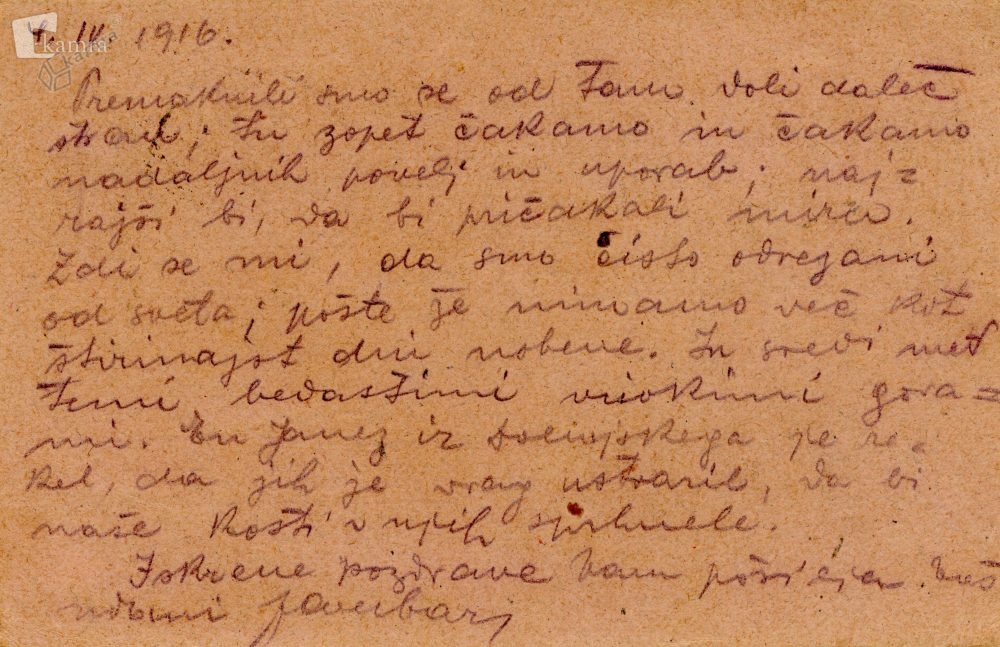 4. IV. 1916.
Premaknili smo se od tam doli daleč
stran; tu zopet čakamo in čakamo
nadaljnih povelj in uporab; naj=
rajši bi, da bi pričakali miru.
Zdi se mi, da smo čisto odrezani
od sveta; pošte že nimamo več kot
štirinajst dni nobene. Tu sredi med
temi bedastimi visokimi gora=
mi. En Janez iz dolenjskega je re=
kel, da jih je vrag ustvaril, da bi
naše kosti v njih sprhnele.
Iskrene pozdrave Vam pošilja Vaš
udani
kamra
kamra